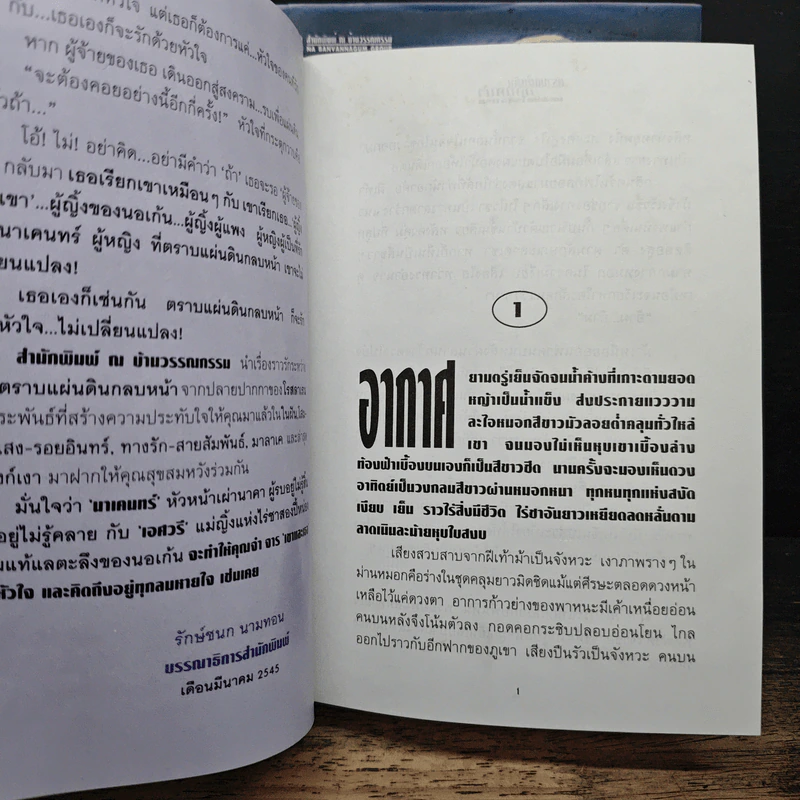 สำนักพิมพ์ ณ บ้านวรรณกรรม
NA BANVANNAGUM GROUP
แต่เธอก็ต้องการแค่...หัวใจของ
กับ...เธอเองก็จะรักด้วยหัวใจ
หาก ผู้จ้ายของเธอ เดินออกสู่สงคราม...รบเพื่อแผ่นดิน
“จะต้องคอยอย่างนี้อีกกี่ครั้ง!” หัวใจที่กระตุก
ถ้า...”
โอ้! ไม่! อย่าคิด...อย่ามีคำว่า ‘ถ้า’ เธอจะรอ ‘ผู้จ้าย
กลับมา เธอเรียกเขาเหมือนๆ กับ เขาเรียกเธอ...‘ผู้ญิ้ง
เขา’...ผู้ญิ้งของนอเก้น...ผู้ญิ้งผู้แพง ผู้หญิงผู้เป็นที่รัก
นาเคนทร์ ผู้หญิง ที่ตราบแผ่นดินกลบหน้า เขาจะไม่
ยนแปลง!
เธอเองก็เช่นกัน ตราบแผ่นดินกลบหน้า ก็จะรัก
หัวใจ...ไม่เปลี่ยนแปลง!
สำนักพิมพ์ ณ บ้านวรรณกรรม นำเรื่องราวรักระหว่าง
ตราบแผ่นดินกลบหน้า จากปลายปากกาของโสภาค
ระพันธ์ที่สร้างความประทับใจให้คุณมาแล้วใน
แสง-รอยอินทร์, ทางรัก-สายสัมพันธ์, มาลาเค และ
งก์เงา มาฝากให้คุณสุขสมหวังร่วมกัน
มั่นใจว่า ‘นาเคนทร์’ หัวหน้าเผ่านาคา ผู้รบอยู่ไม่รู้สิ้น
อยู่ไม่รู้คลาย กับ ‘เอศวรี’ แม่ญิ้งแห่งไร่ชาสองปี้
แท้แลตะลึงของนอเก้น จะทำให้คุณจำ จาร
หัวใจ และคิดถึงอยู่ทุกลมหายใจ เช่นเคย
รักษ์ชนก นามทอน
บรรณาธิการสำนักพิมพ์
เดือนมีนาคม 2545
1
อากาศ ยามตรู่เย็นจัดจนน้ำค้างที่เกาะตามยอด
หญ้าเป็นน้ำแข็ง ส่งประกายแวววาม
ละไอหมอกสีขาวมัวลอยต่ำคลุมทั่วไหล่
เขา จนมองไม่เห็นหุบเขาเบื้องล่าง
ท้องฟ้าเบื้องบนเองก็เป็นสีขาวซีด นานครั้งจะมองเห็นดวง
อาทิตย์เป็นวงกลมสีขาวผ่านหมอกหนา ทุกหนทุกแห่งสงัด
เงียบ เย็น ราวไร้สิ่งมีชีวิต ไร่ชาอันยาวเหยียดลดหลั่นตาม
ลาดเนินละม้ายหุบใบสงบ
เสียงสวบสาบจากฝีเท้าม้าเป็นจังหวะ เงาภาพรางๆ ใน
ม่านหมอกคือร่างในชุดคลุมยาวมิดชิดแม้แต่ศีรษะตลอดดวงหน้า
เหลือไว้แค่ดวงตา อาการก้าวย่างของพาหนะมีเค้าเหนื่อยอ่อน
คนบนหลังจึงโน้มตัวลง กอดคอกระซิบปลอบอ่อนโยน ไกล
ออกไปราวกับอีกฟากของภูเขา เสียงปืนรัวเป็นจังหวะ คนบน
1